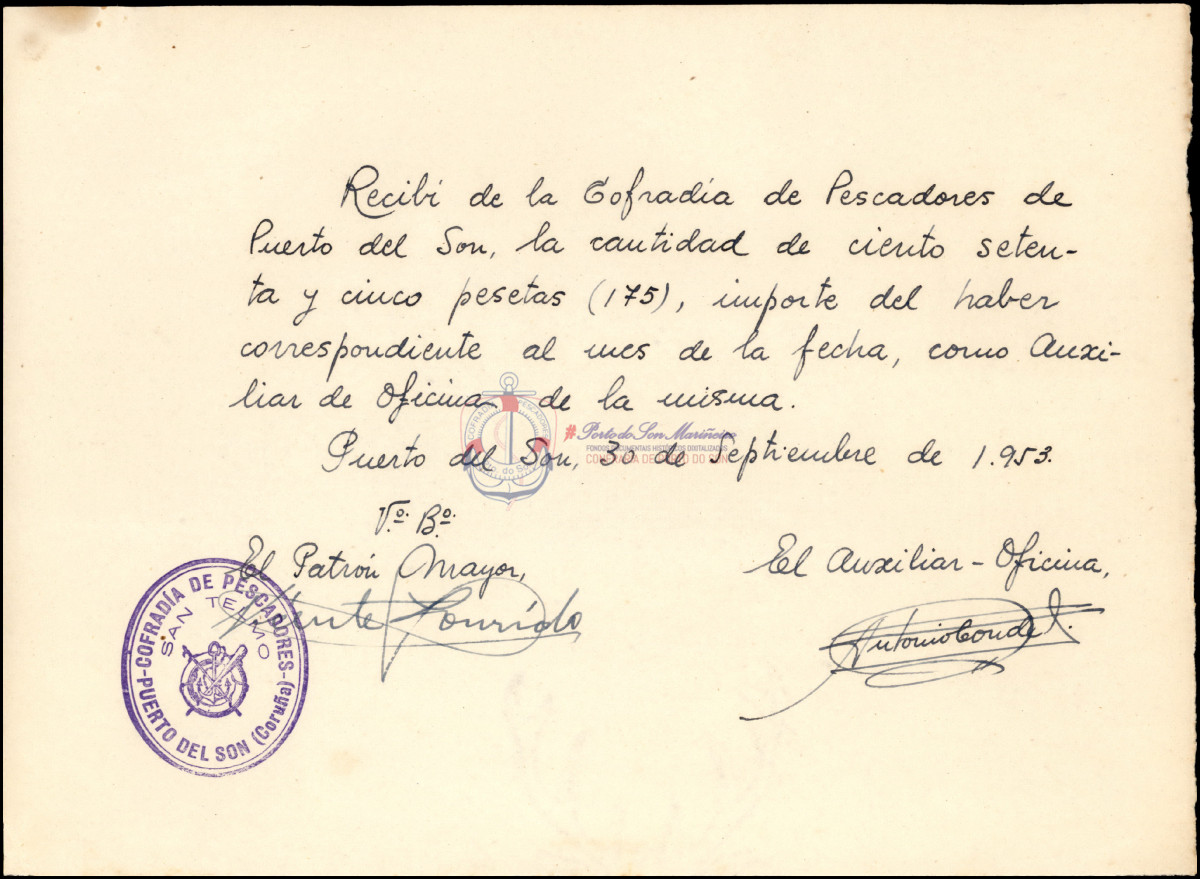 Recibí de la Cofradía de Pescadores de
Puerto del Son, la cantidad de ciento seten-
ta y cinco pesetas (175), importe del haber
correspondiente al mes de la fecha, como Auxi-
liar de Oficina de la misma.
#Porto do Son Mariñeiro
FONDOS DOCUMENTAIS HISTÓRICOS DIGITALIZADOS
CONFRARÍA DE PORTO DO SON
Puerto del Son, 30 de Septiembre de 1.953.
Vº. Bº.
El Patrón Mayor,
El Auxiliar-Oficina,
Vicente Lourido
Antonio Conde
COFRADÍA DE PESCADORES
SAN TELMO
PUERTO DEL SON (Coruña)